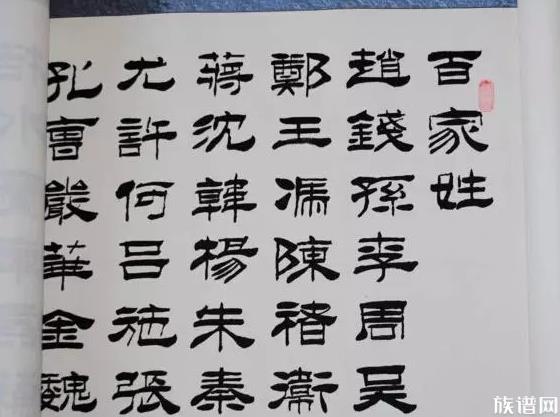 百家姓
趙錢孫李周吴
鄭王馮陳褚衛
蔣沈韓楊朱秦
尤許何吕施張
孔曹嚴華金魏
族谱网